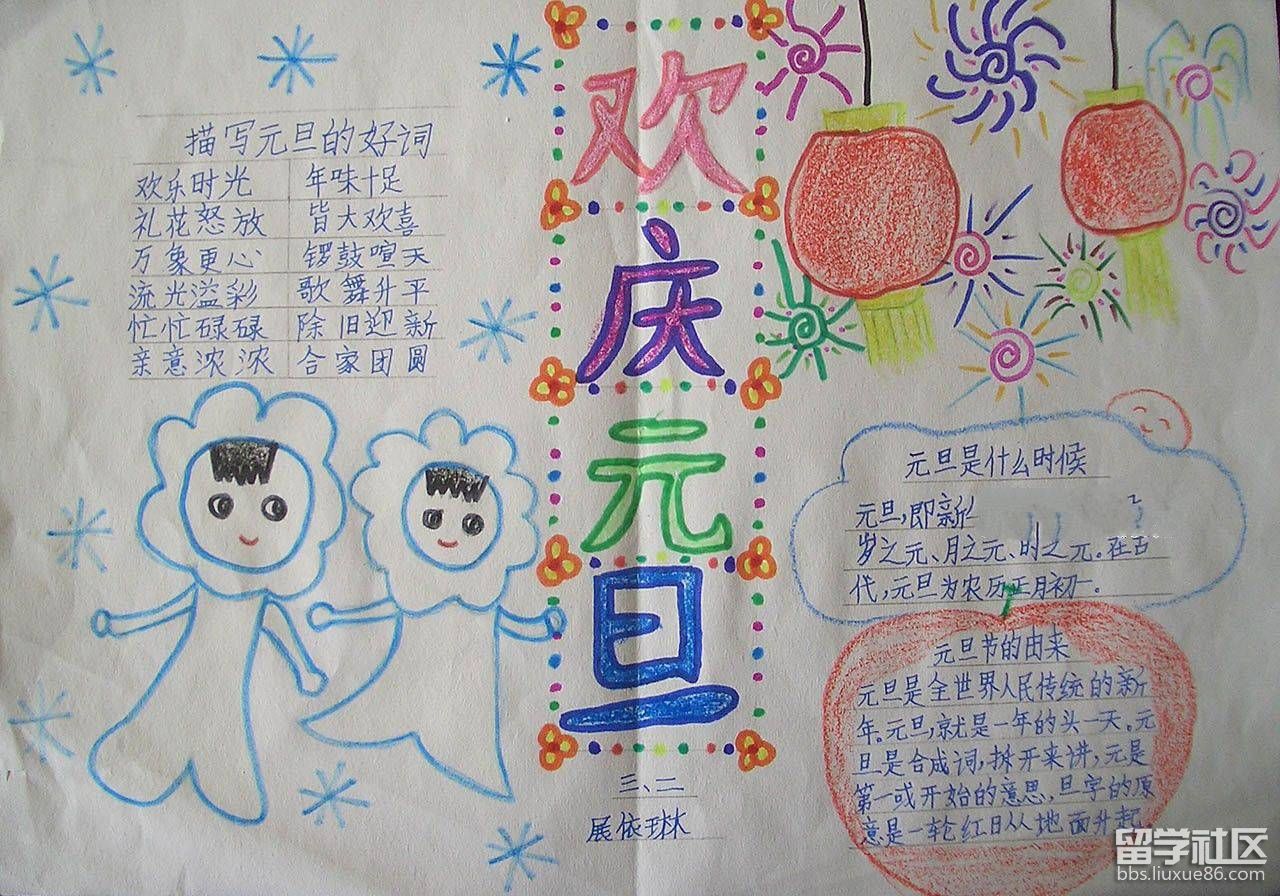 描写元旦的好词
欢乐时光 年味十足
礼花怒放 皆大欢喜
万象更心 锣鼓喧天
流光溢彩 歌舞升平
忙忙碌碌 除旧迎新
亲意浓浓 合家团圆
欢
庆
元
旦
三、二
展依琳
元旦是什么时候
元旦,即新
岁之元、月之元、时之元。在古
代,元旦为农历正月初一。
元旦节的由来
元旦是全世界人民传统的新
年。元旦,就是一年的头一天。元
旦是合成词,拆开来讲,元是
第一或开始的意思,旦字的原
意是一轮红日从地面升起。
留学社区
bbs.liuxue86.com